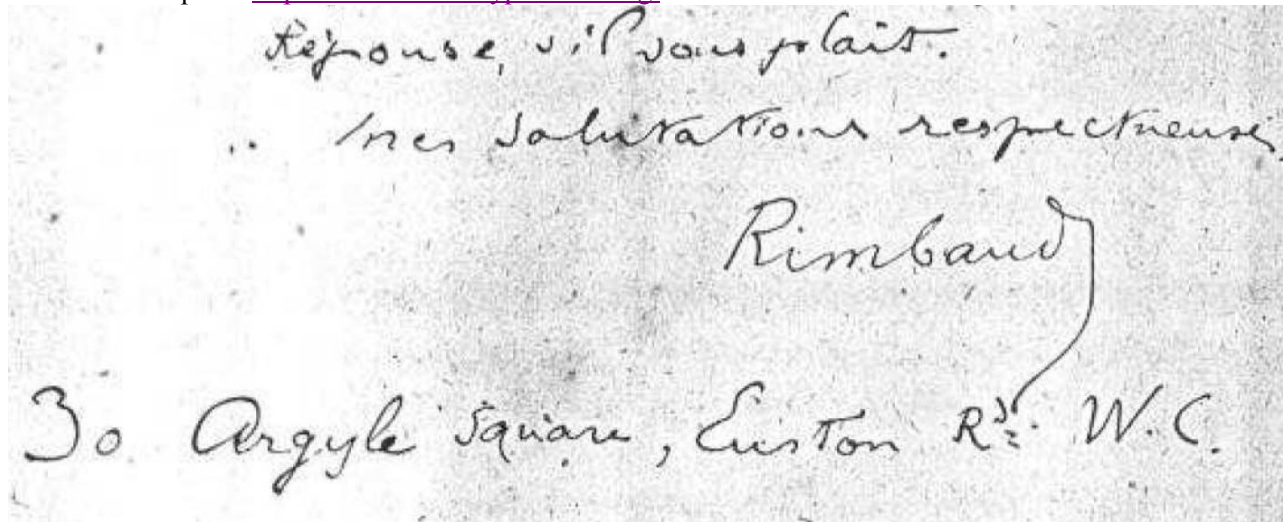 Réponse, s'il vous plait.
Mes salutations respectueuses
Rimbaud
30 Argyle Square, Euston Rd. W.C.